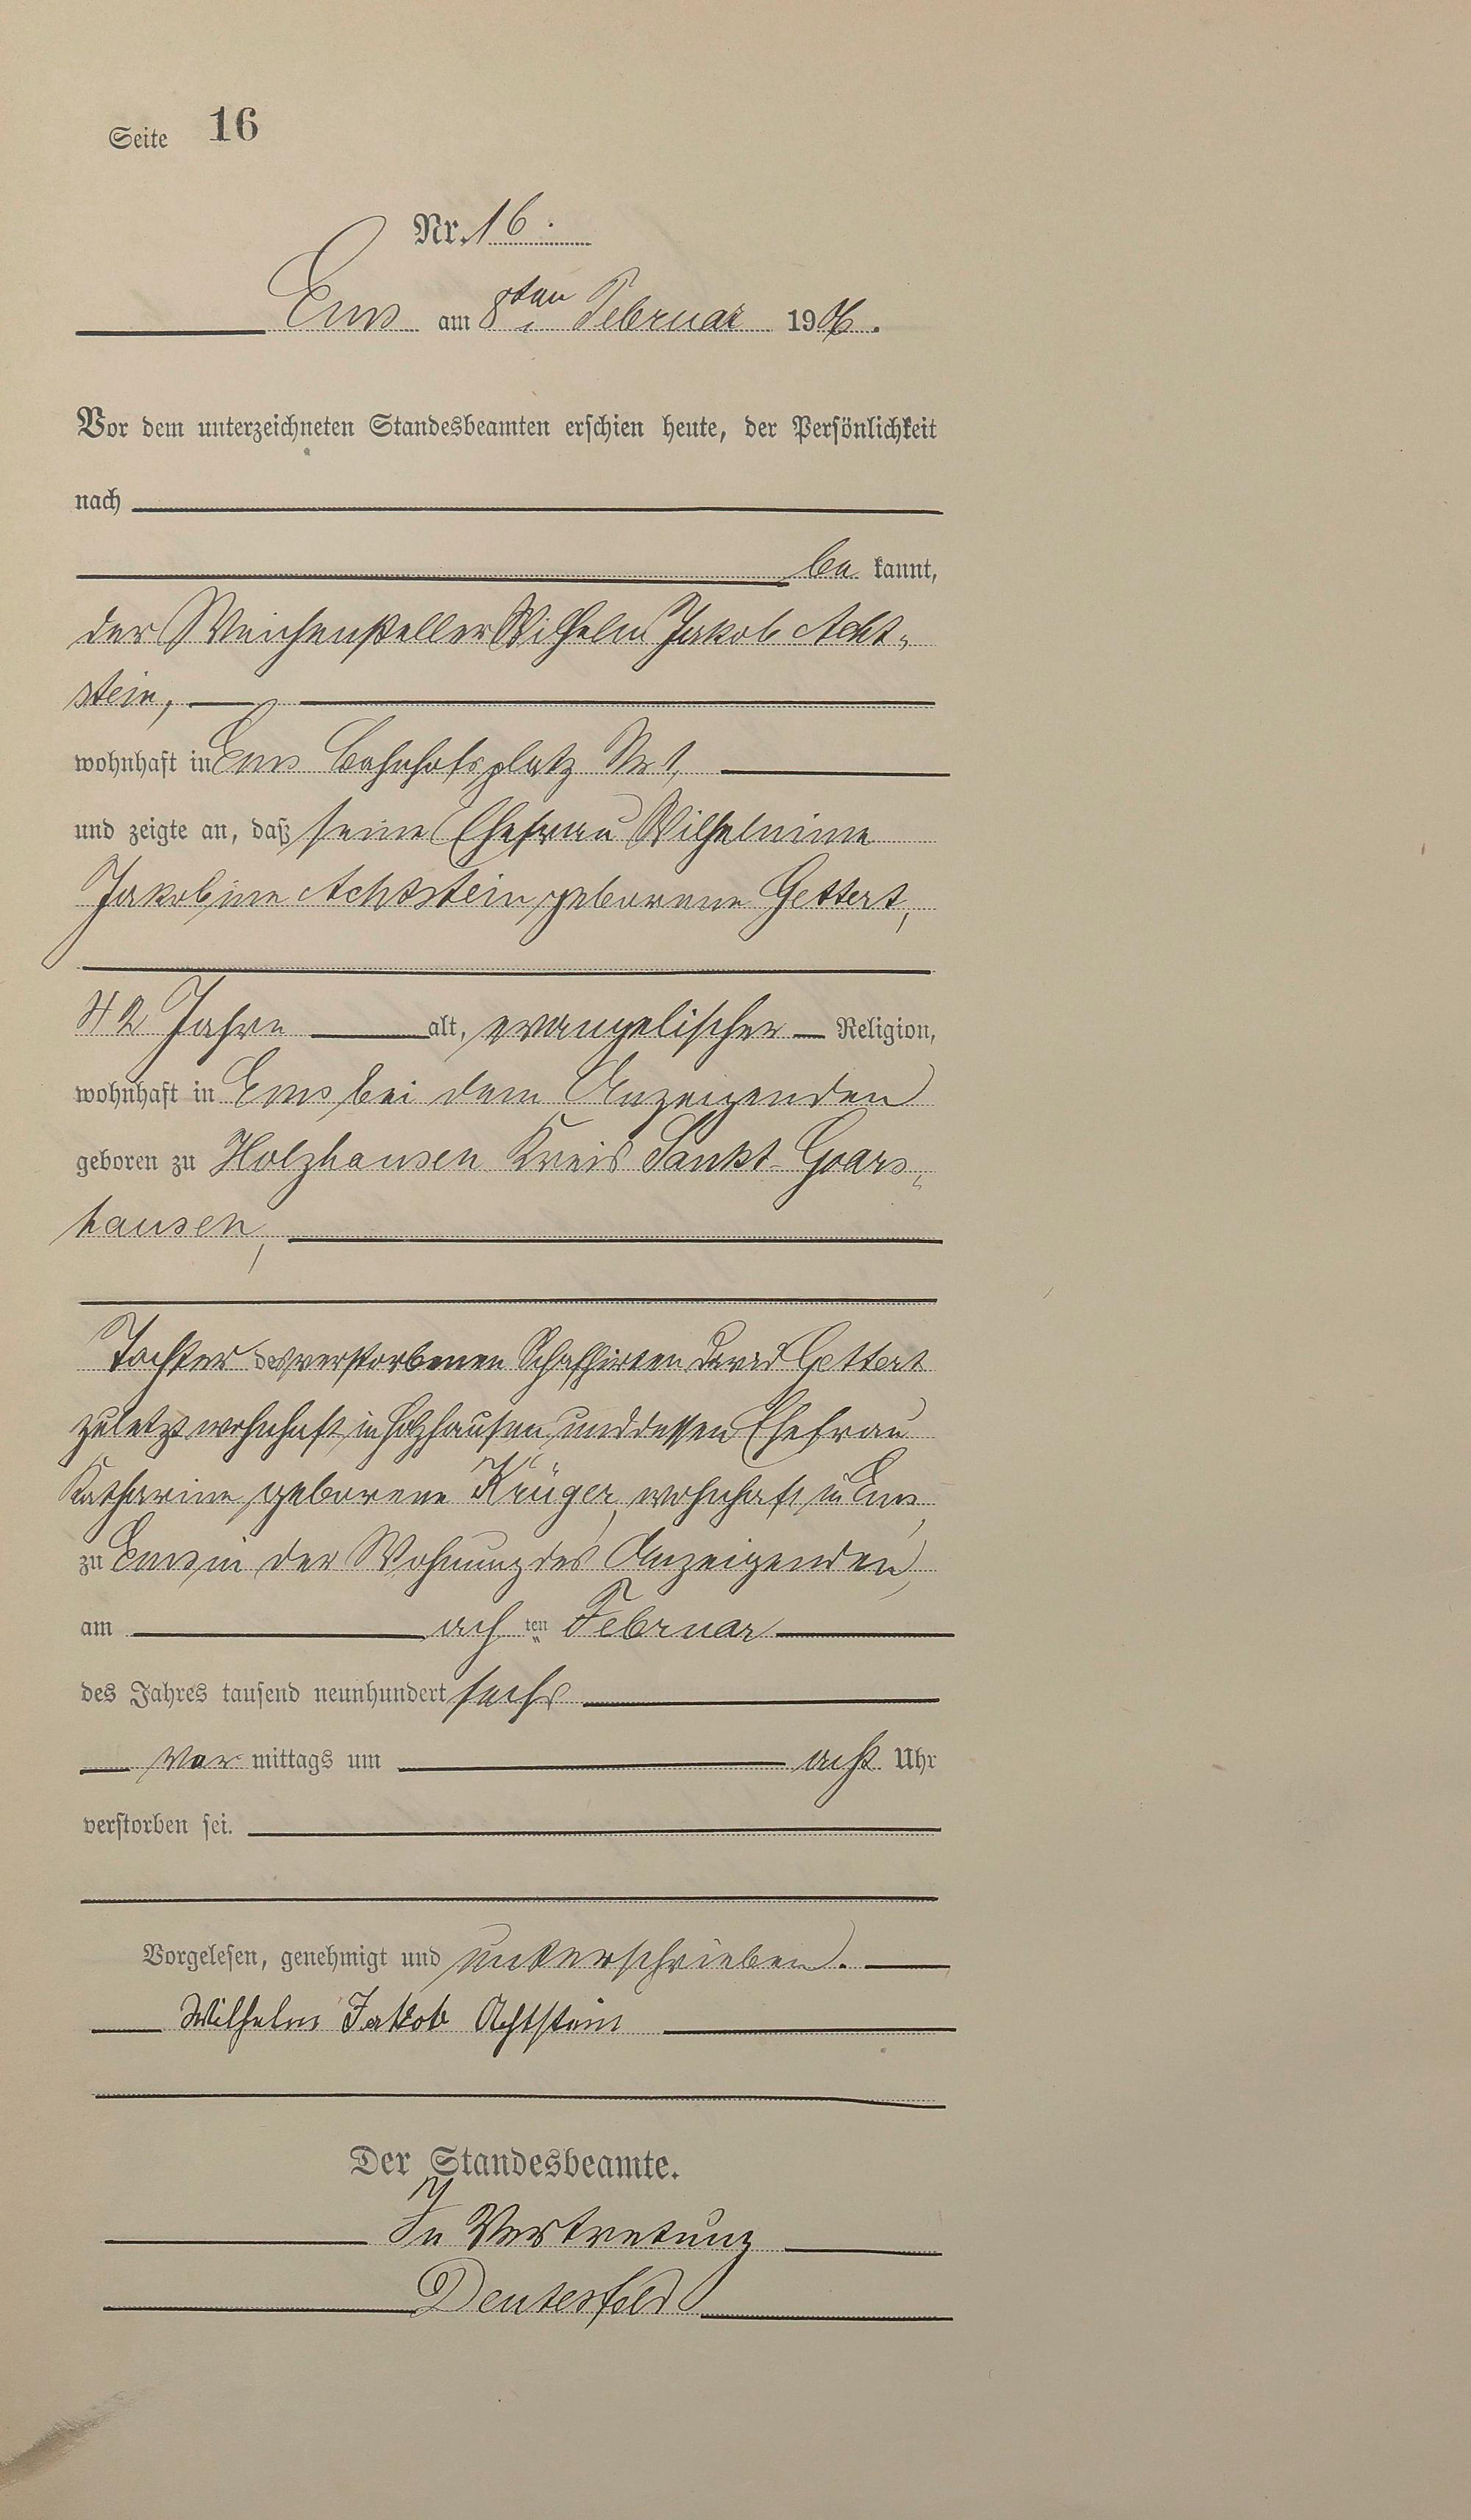 Seite 16
Nr. 16.
Ems am 8ten Februar 1906.
Vor dem unterzeichneten Standesbeamten erschien heute, der Persönlichkeit
nach
be kannt,
der Weichensteller Wilhelm Jakob Acht-
stein,
wohnhaft in Ems Bahnhofsplatz Nr 1,
und zeigte an, daß seine Ehefrau Wilhelmine
Jakobine Achtstein, geborene Gettert,
42 Jahre alt, evangelischer Religion,
wohnhaft in Ems bei dem Anzeigenden
geboren zu Holzhausen Kreis Sankt Goars-
hausen,
Tochter des verstorbenen Schafhirten David Gettert
zuletzt wohnhaft in Holzhausen, und dessen Ehefrau
Katharine geborene Krüger, wohnhaft in Ems,
zu Ems in der Wohnung des Anzeigenden,
am ach ten Februar
des Jahres tausend neunhundert sechs
Vor mittags um acht Uhr
verstorben sei.
Vorgelesen, genehmigt und unterschrieben.
Wilhelm Jakob Achtstein
Der Standesbeamte.
In Vertretung